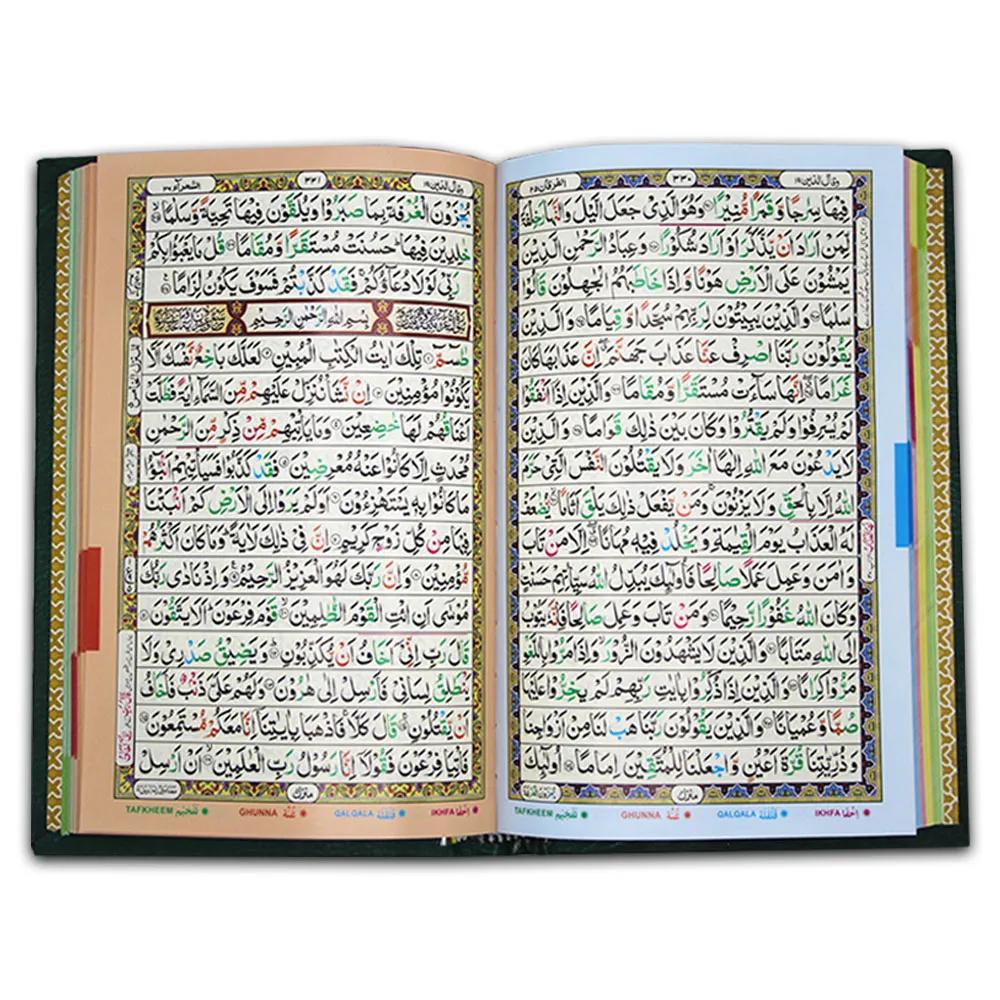 وقال الذین ١٩
٣٣٠
الفرقان ٢٥
فِيْهَا سِرٰجًا وَّ قَمَرًا مُّنِيْرًا وَهُوَ الَّذِيْ جَعَلَ الَّيْلَ وَ النَّهَارَ خِلْفَةً
لِّمَنْ اَرَادَ اَنْ يَّذَّكَّرَ اَوْ اَرَادَ شُكُوْرًا وَ عِبَادُ الرَّحْمٰنِ الَّذِيْنَ
يَمْشُوْنَ عَلَى الْاَرْضِ هَوْنًا وَّ اِذَا خَاطَبَهُمُ الْجٰهِلُوْنَ قَالُوْا
سَلٰمًا وَالَّذِيْنَ يَبِيْتُوْنَ لِرَبِّهِمْ سُجَّدًا وَّ قِيَامًا وَ الَّذِيْنَ
يَقُوْلُوْنَ رَبَّنَا اصْرِفْ عَنَّا عَذَابَ جَهَنَّمَ اِنَّ عَذَابَهَا كَانَ
غَرَامًا اِنَّهَا سَآءَتْ مُسْتَقَرًّا وَّ مُقَامًا وَالَّذِيْنَ اِذَا اَنْفَقُوْا
لَمْ يُسْرِفُوْا وَ لَمْ يَقْتُرُوْا وَ كَانَ بَيْنَ ذٰلِكَ قَوَامًا وَ الَّذِيْنَ
لَا يَدْعُوْنَ مَعَ اللّٰهِ اِلٰهًا اٰخَرَ وَ لَا يَقْتُلُوْنَ النَّفْسَ الَّتِيْ حَرَّمَ
اللّٰهُ اِلَّا بِالْحَقِّ وَ لَا يَزْنُوْنَ وَ مَنْ يَّفْعَلْ ذٰلِكَ يَلْقَ اَثَامًا يُّضٰعَفْ
لَهُ الْعَذَابُ يَوْمَ الْقِيٰمَةِ وَ يَخْلُدْ فِيْهٖ مُهَانًا اِلَّا مَنْ تَابَ
وَ اٰمَنَ وَ عَمِلَ عَمَلًا صَالِحًا فَاُولٰٓئِكَ يُبَدِّلُ اللّٰهُ سَيِّاٰتِهِمْ حَسَنٰتٍ
وَ كَانَ اللّٰهُ غَفُوْرًا رَّحِيْمًا وَ مَنْ تَابَ وَ عَمِلَ صَالِحًا فَاِنَّهٗ يَتُوْبُ
اِلَى اللّٰهِ مَتَابًا وَالَّذِيْنَ لَا يَشْهَدُوْنَ الزُّوْرَ وَ اِذَا مَرُّوْا بِاللَّغْوِ
مَرُّوْا كِرَامًا وَ الَّذِيْنَ اِذَا ذُكِّرُوْا بِاٰيٰتِ رَبِّهِمْ لَمْ يَخِرُّوْا عَلَيْهَا
صُمًّا وَّ عُمْيَانًا وَالَّذِيْنَ يَقُوْلُوْنَ رَبَّنَا هَبْ لَنَا مِنْ اَزْوَاجِنَا
وَ ذُرِّيّٰتِنَا قُرَّةَ اَعْيُنٍ وَّ اجْعَلْنَا لِلْمُتَّقِيْنَ اِمَامًا اُولٰٓئِكَ
منزل
TAFKHEEM تفخيم GHUNNA غنّة QALQALA قلقلة IKHFA اخفا
وقال الذین ١٩
٣٣١
الشعرآء ٢٦
يُجْزَوْنَ الْغُرْفَةَ بِمَا صَبَرُوْا وَ يُلَقَّوْنَ فِيْهَا تَحِيَّةً وَّ سَلٰمًا
خٰلِدِيْنَ فِيْهَا حَسُنَتْ مُسْتَقَرًّا وَّ مُقَامًا قُلْ مَا يَعْبَؤُا بِكُمْ
رَبِّيْ لَوْ لَا دُعَآؤُكُمْ فَقَدْ كَذَّبْتُمْ فَسَوْفَ يَكُوْنُ لِزَامًا
بِسْمِ اللّٰهِ الرَّحْمٰنِ الرَّحِيْمِ
طٰسٓمّٓ تِلْكَ اٰيٰتُ الْكِتٰبِ الْمُبِيْنِ لَعَلَّكَ بَاخِعٌ نَّفْسَكَ اَلَّا
يَكُوْنُوْا مُؤْمِنِيْنَ اِنْ نَّشَاْ نُنَزِّلْ عَلَيْهِمْ مِّنَ السَّمَآءِ اٰيَةً فَظَلَّتْ
اَعْنَاقُهُمْ لَهَا خٰضِعِيْنَ وَ مَا يَاْتِيْهِمْ مِّنْ ذِكْرٍ مِّنَ الرَّحْمٰنِ
مُحْدَثٍ اِلَّا كَانُوْا عَنْهُ مُعْرِضِيْنَ فَقَدْ كَذَّبُوْا فَسَيَاْتِيْهِمْ اَنْۢبٰٓؤُا
مَا كَانُوْا بِهٖ يَسْتَهْزِءُوْنَ اَوَلَمْ يَرَوْا اِلَى الْاَرْضِ كَمْ اَنْۢبَتْنَا
فِيْهَا مِنْ كُلِّ زَوْجٍ كَرِيْمٍ اِنَّ فِيْ ذٰلِكَ لَاٰيَةً وَ مَا كَانَ اَكْثَرُهُمْ
مُّؤْمِنِيْنَ وَ اِنَّ رَبَّكَ لَهُوَ الْعَزِيْزُ الرَّحِيْمُ وَ اِذْ نَادٰى رَبُّكَ
مُوْسٰٓى اَنِ ائْتِ الْقَوْمَ الظّٰلِمِيْنَ قَوْمَ فِرْعَوْنَ اَلَا يَتَّقُوْنَ
قَالَ رَبِّ اِنِّيْٓ اَخَافُ اَنْ يُّكَذِّبُوْنِ وَ يَضِيْقُ صَدْرِيْ وَ لَا
يَنْطَلِقُ لِسَانِيْ فَاَرْسِلْ اِلٰى هٰرُوْنَ وَ لَهُمْ عَلَيَّ ذَنْۢبٌ فَاَخَافُ
اَنْ يَّقْتُلُوْنِ قَالَ كَلَّا فَاذْهَبَا بِاٰيٰتِنَآ اِنَّا مَعَكُمْ مُّسْتَمِعُوْنَ
فَاْتِيَا فِرْعَوْنَ فَقُوْلَآ اِنَّا رَسُوْلُ رَبِّ الْعٰلَمِيْنَ اَنْ اَرْسِلْ
منزل
TAFKHEEM تفخيم GHUNNA غنّة QALQALA قلقلة IKHFA اخفا